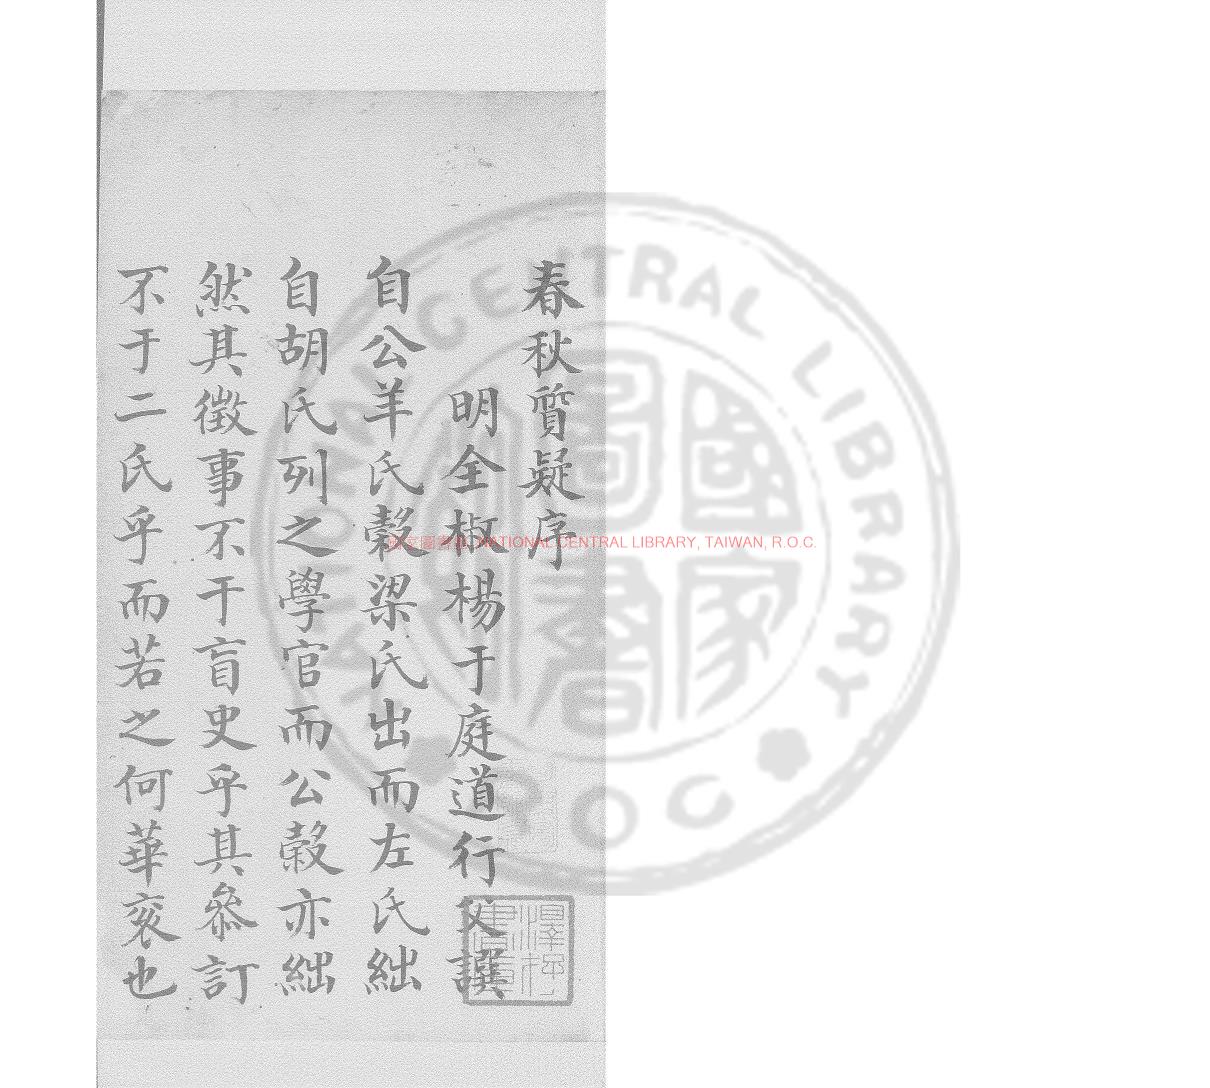 春秋質疑序
明全椒楊于庭道行父譔
自公羊氏糓梁氏出而左氏絀
自胡氏列之學官而公糓亦絀
然其徵事不于盲史乎其叅訂
不于二氏乎而若之何華衮也
國家圖書館, NATIONAL CENTRAL LIBRARY, TAIWAN, R.O.C.
NATIONAL CENTRAL LIBRARY
R.O.C
TAIWAN
國家圖書